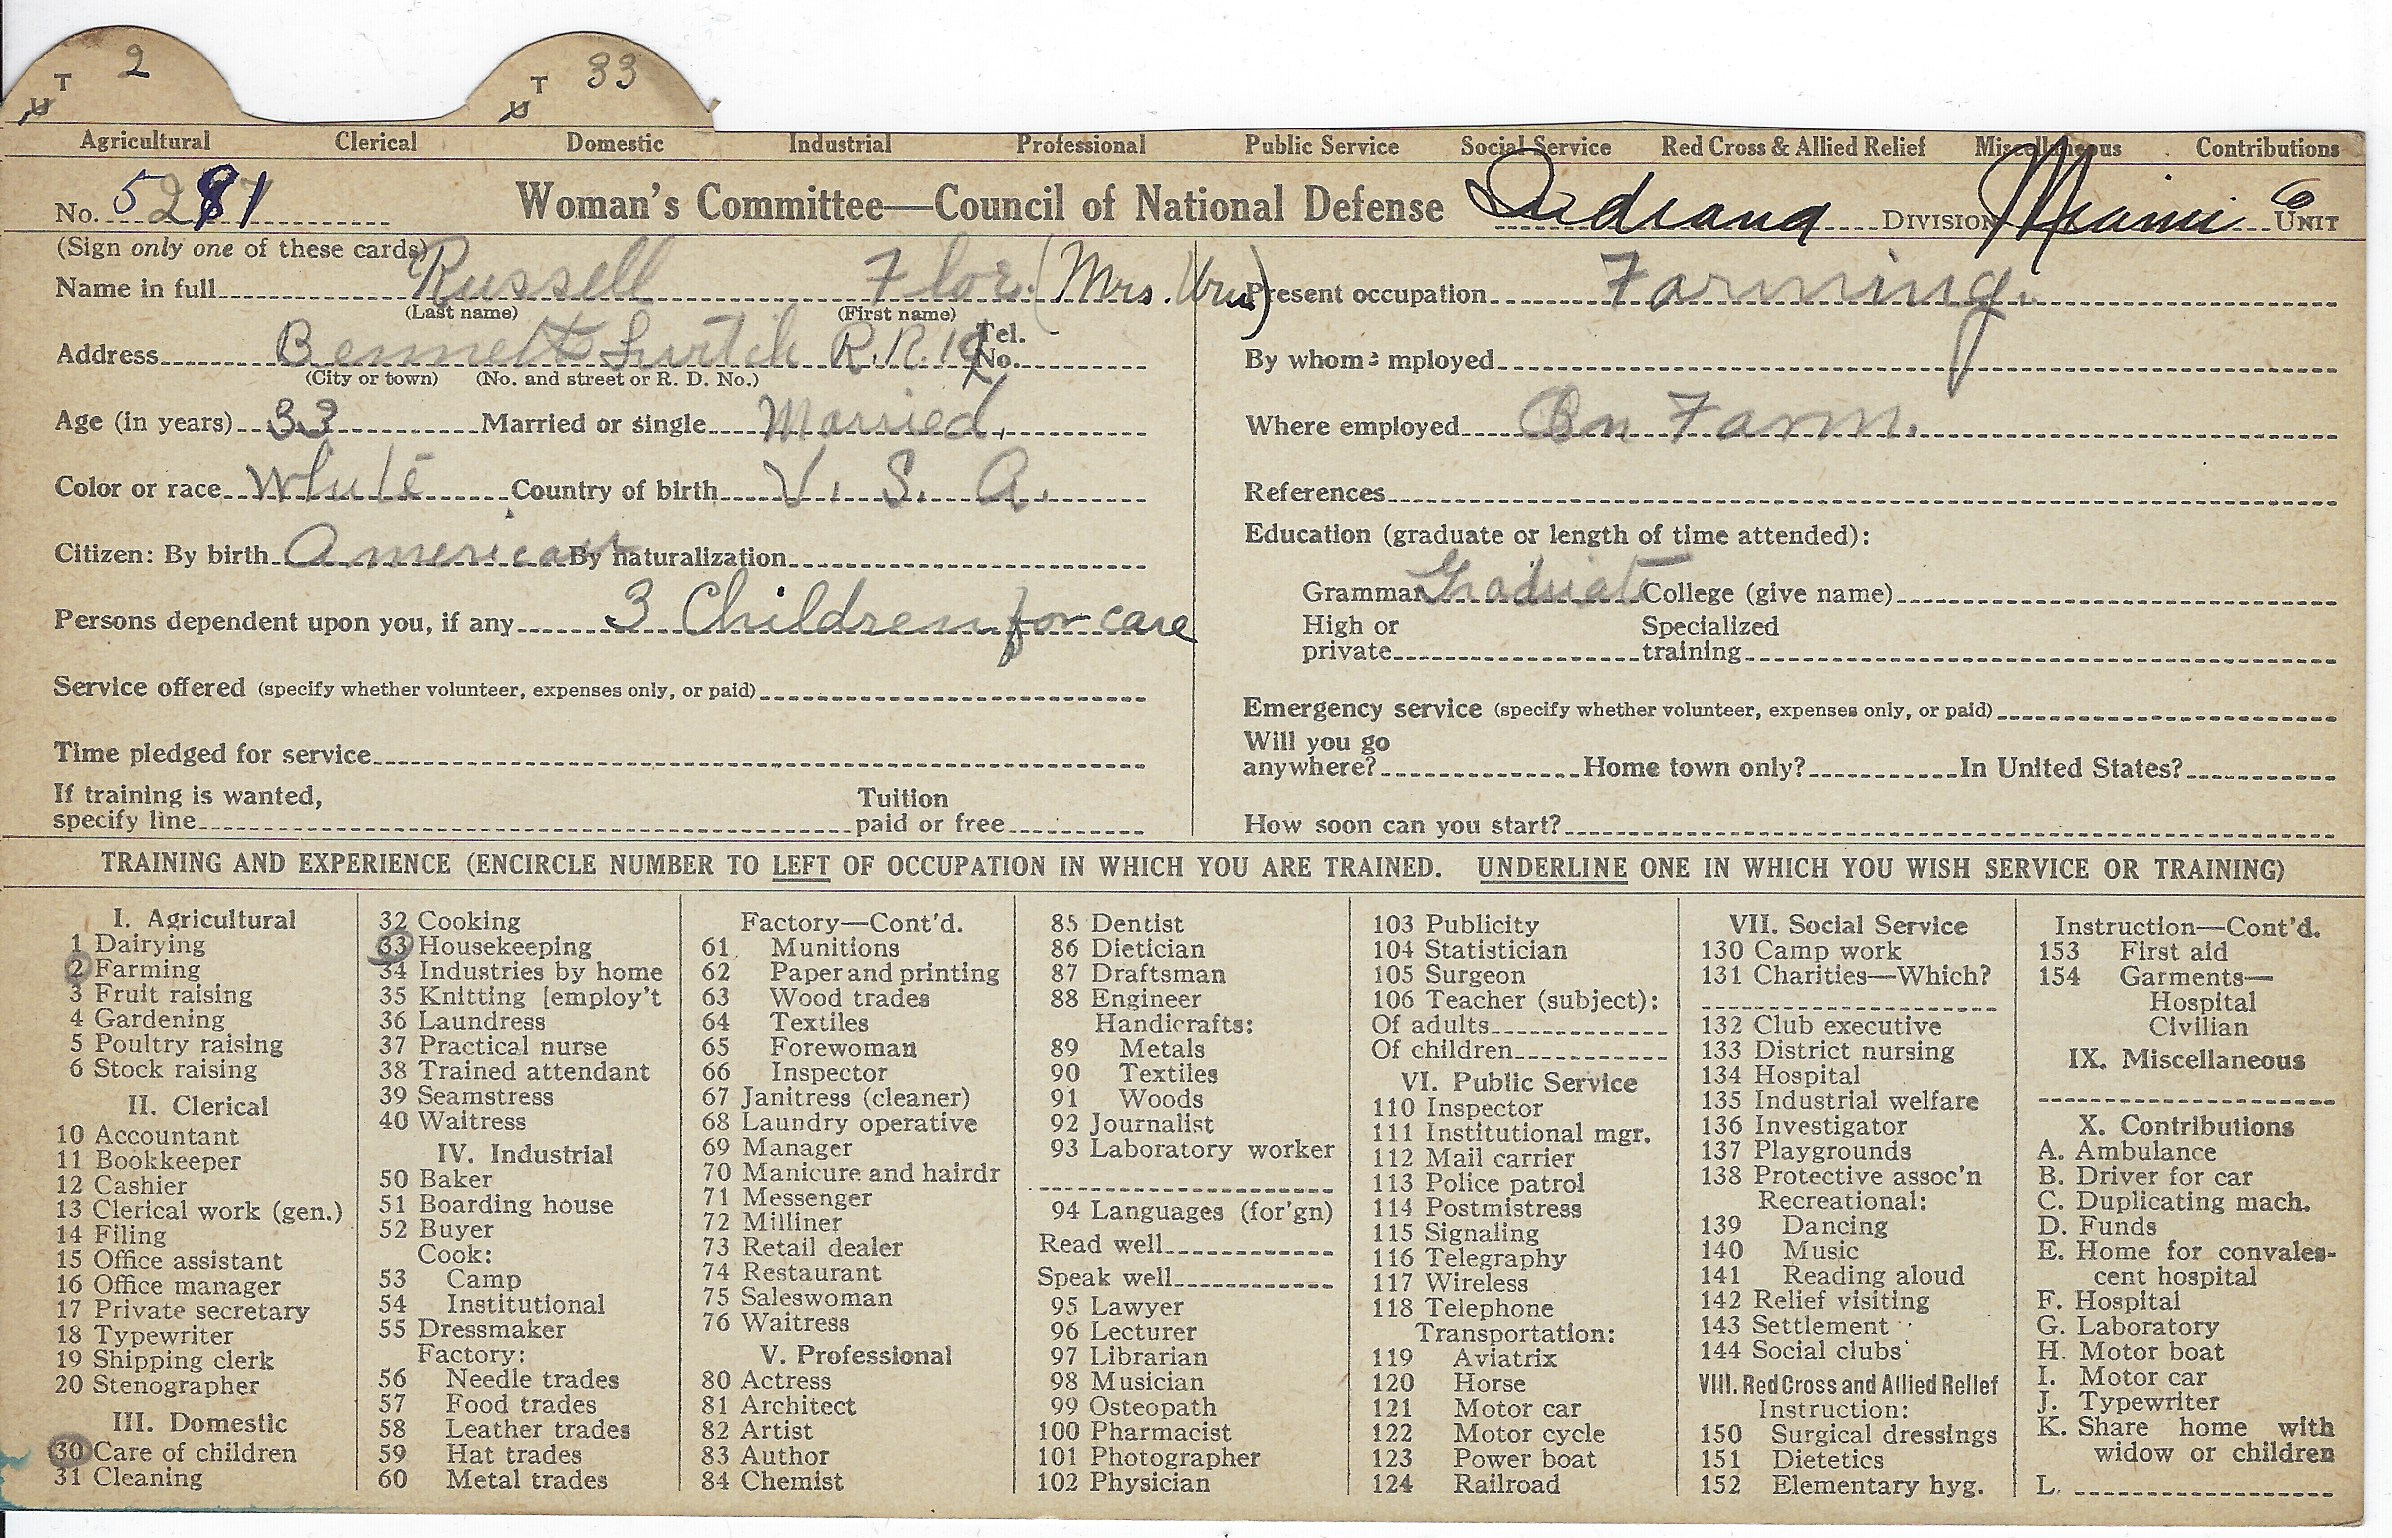 T 2 T 33
U U
Agricultural Clerical Domestic Industrial Professional Public Service Social Service Red Cross & Allied Relief Miscellaneous Contributions
No. 5281 Woman's Committee—Council of National Defense Indiana DIVISION Miami UNIT
(Sign only one of these cards)
Name in full Russell Floe. (Mrs. Wm)
(Last name) (First name)
Address Bennett Switch R.R. 19 Tel. No.
(City or town) (No. and street or R. D. No.)
Age (in years) 33 Married or single Married.
Color or race White Country of birth U. S. A.
Citizen: By birth American By naturalization
Persons dependent upon you, if any 3 Children for care
Service offered (specify whether volunteer, expenses only, or paid)
Time pledged for service
If training is wanted, specify line Tuition paid or free
Present occupation Farming.
By whom employed
Where employed On Farm.
References
Education (graduate or length of time attended):
Grammar Graduate College (give name)
High or private Specialized training
Emergency service (specify whether volunteer, expenses only, or paid)
Will you go anywhere? Home town only? In United States?
How soon can you start?
TRAINING AND EXPERIENCE (ENCIRCLE NUMBER TO LEFT OF OCCUPATION IN WHICH YOU ARE TRAINED. UNDERLINE ONE IN WHICH YOU WISH SERVICE OR TRAINING)
I. Agricultural
1 Dairying
2 Farming
3 Fruit raising
4 Gardening
5 Poultry raising
6 Stock raising
II. Clerical
10 Accountant
11 Bookkeeper
12 Cashier
13 Clerical work (gen.)
14 Filing
15 Office assistant
16 Office manager
17 Private secretary
18 Typewriter
19 Shipping clerk
20 Stenographer
III. Domestic
30 Care of children
31 Cleaning
32 Cooking
33 Housekeeping
34 Industries by home
35 Knitting [employ't
36 Laundress
37 Practical nurse
38 Trained attendant
39 Seamstress
40 Waitress
IV. Industrial
50 Baker
51 Boarding house
52 Buyer
Cook:
53 Camp
54 Institutional
55 Dressmaker
Factory:
56 Needle trades
57 Food trades
58 Leather trades
59 Hat trades
60 Metal trades
Factory—Cont'd.
61 Munitions
62 Paper and printing
63 Wood trades
64 Textiles
65 Forewoman
66 Inspector
67 Janitress (cleaner)
68 Laundry operative
69 Manager
70 Manicure and hairdr
71 Messenger
72 Milliner
73 Retail dealer
74 Restaurant
75 Saleswoman
76 Waitress
V. Professional
80 Actress
81 Architect
82 Artist
83 Author
84 Chemist
85 Dentist
86 Dietician
87 Draftsman
88 Engineer
Handicrafts:
89 Metals
90 Textiles
91 Woods
92 Journalist
93 Laboratory worker
94 Languages (for'gn)
Read well
Speak well
95 Lawyer
96 Lecturer
97 Librarian
98 Musician
99 Osteopath
100 Pharmacist
101 Photographer
102 Physician
103 Publicity
104 Statistician
105 Surgeon
106 Teacher (subject):
Of adults
Of children
VI. Public Service
110 Inspector
111 Institutional mgr.
112 Mail carrier
113 Police patrol
114 Postmistress
115 Signaling
116 Telegraphy
117 Wireless
118 Telephone
Transportation:
119 Aviatrix
120 Horse
121 Motor car
122 Motor cycle
123 Power boat
124 Railroad
VII. Social Service
130 Camp work
131 Charities—Which?
132 Club executive
133 District nursing
134 Hospital
135 Industrial welfare
136 Investigator
137 Playgrounds
138 Protective assoc'n
Recreational:
139 Dancing
140 Music
141 Reading aloud
142 Relief visiting
143 Settlement
144 Social clubs
VIII. Red Cross and Allied Relief
Instruction:
150 Surgical dressings
151 Dietetics
152 Elementary hyg.
Instruction—Cont'd.
153 First aid
154 Garments—
Hospital
Civilian
IX. Miscellaneous
X. Contributions
A. Ambulance
B. Driver for car
C. Duplicating mach.
D. Funds
E. Home for convales-
cent hospital
F. Hospital
G. Laboratory
H. Motor boat
I. Motor car
J. Typewriter
K. Share home with
widow or children
L.